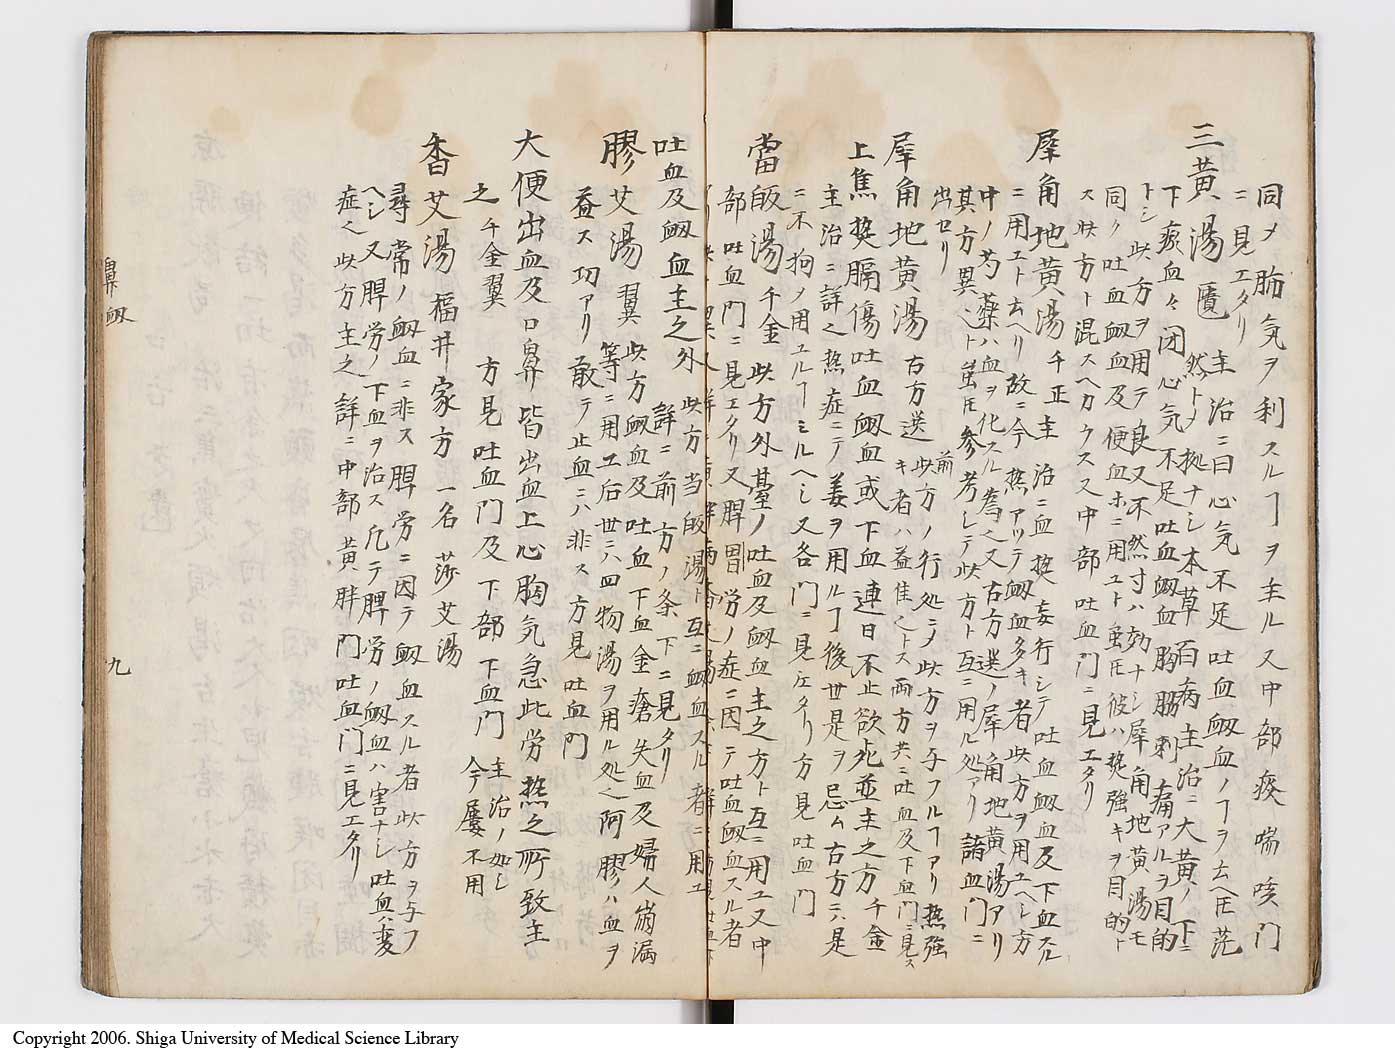 同〆肺気ヲ利スルヿヲ主ル又中部痰喘咳門
ニ見エタリ
三黄湯 匱 主治ニ曰心気不足吐血衂血ノヿヲ云ヘ𪜈茫
然トメ拠ナシ本草百病主治ニ大黄ノ下ニ
下瘀血々閉心気不足吐血衂血胸脇刺痛アルヲ目的
トシ此方ヲ用テ良又不然寸ハ効ナシ犀角地黄湯モ
同ク吐血衂血及便血ホニ用ユト虽𪜈彼ハ熱強キヲ目的ト
ス此方ト混スヘカラス又中部吐血門ニ見エタリ
犀角地黄湯 千正 主治ニ血熱妄行シテ吐血衂血及下血スル
ニ用エト云ヘリ故ニ今熱アツテ衂血多キ者此方ヲ用ユヘシ方
中ノ芍薬ハ血ヲ化スル為也又古方選ノ犀角地黄湯アリ
其方異ニト虽𪜈参考レテ此方ト互ニ用ル処アリ諸血門ニ
出セリ
犀角地黄湯 古方選 此方ノ行処ニ〆此方ヲ与フルヿアリ熱強
キ者ハ益佳也トス両方共ニ吐血及下血門ニ見ス
上焦熱膈傷吐血衂血或下血連日不止欲死並主之方千金
主治ニ詳也熱症ニテ姜ヲ用ルヿ後世是ヲ忌ム古方ニハ是
ニ不拘〆用ユルヿミルヘシ又各門ニ見エタリ方見吐血門
當皈湯 千金 此方外臺ノ吐血及衂血主之方ト互ニ用ユ又中
部吐血門ニ見エタリ又脾胃労ノ症ニ因テ吐血衂血スル者
吐血及衂血主之外 此方当皈湯ト互ニ衂血スル者ニ用ユ
詳ニ前方ノ条下ニ見タリ
膠艾湯 翼 此方衂血及吐血下血金瘡失血及婦人崩漏
等ニ用エ后世ニハ四物湯ヲ用ル処也阿膠ハ血ヲ
益ス功アリ敢テ止血ニハ非ス方見吐血門
大便出血及口鼻皆出血上心胸気急此労熱之所致主
之 千金翼 方見吐血門及下部下血門 主治ノ如シ
今屡不用
香艾湯 福井家方 一名莎艾湯
尋常ノ衂血ニ非ス脾労ニ因テ衂血スル者此方ヲ与フ
ヘシ又脾労ノ下血ヲ治ス凡テ脾労ノ衂血ハ害ナシ吐血ハ変
症也此方主之詳ニ中部黄胖門吐血門ニ見エタリ
鼻衂
九
Copyright 2006. Shiga University of Medical Science Library